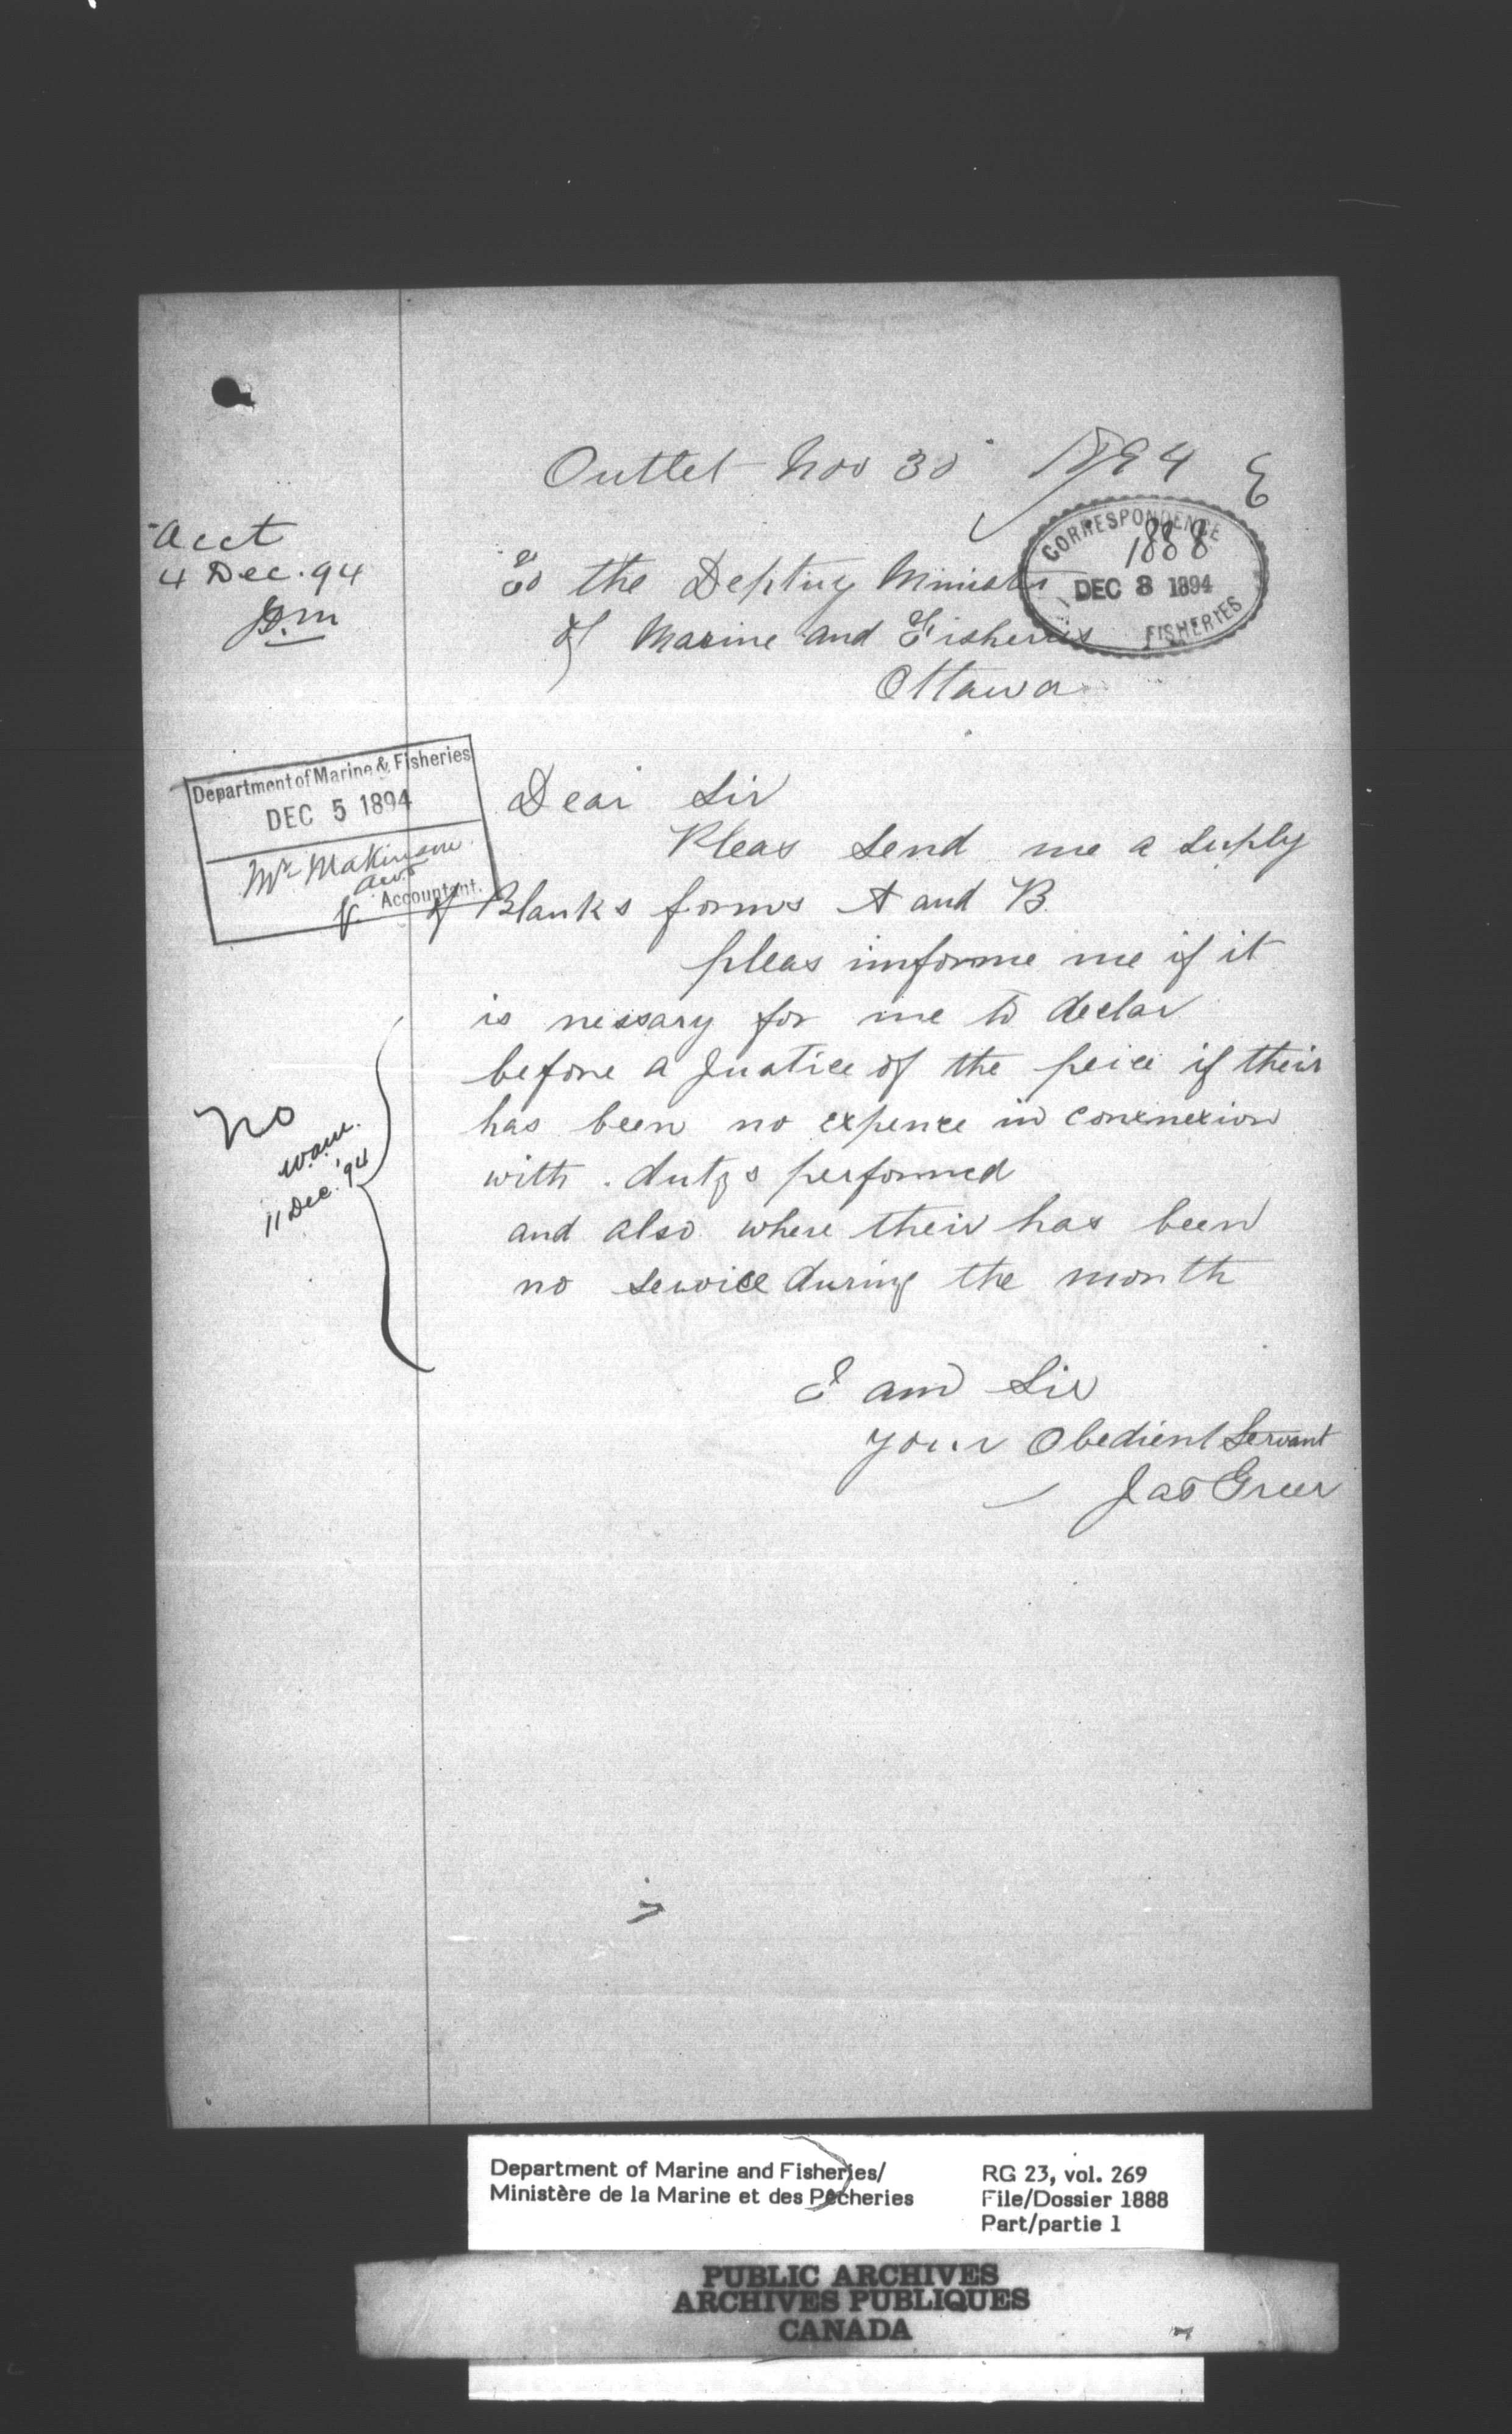 Outlet Nov 30 1894
E
Acct
4 Dec. 94
To the Deptuy Minister
of Marine and Fisheries
Ottawa
CORRESPONDENCE
1888
DEC 8 1894
FISHERIES
Department of Marine & Fisheries
DEC 5 1894
Mr Makinson
Accountant.
Dear Sir
Pleas Send me a Suply
of Blanks forms A and B
pleas imforme me if it
is nessary for me to declar
before a Justice of the peice if their
has been no expence in connexion
with dutys performed
and also where their has been
no service during the month
No
W.a.w.
11 Dec. '94
I am Sir
your Obedient Servant
Jas Greer
Department of Marine and Fisheries/
Ministère de la Marine et des Pêcheries
RG 23, vol. 269
File/Dossier 1888
Part/partie 1
PUBLIC ARCHIVES
ARCHIVES PUBLIQUES
CANADA